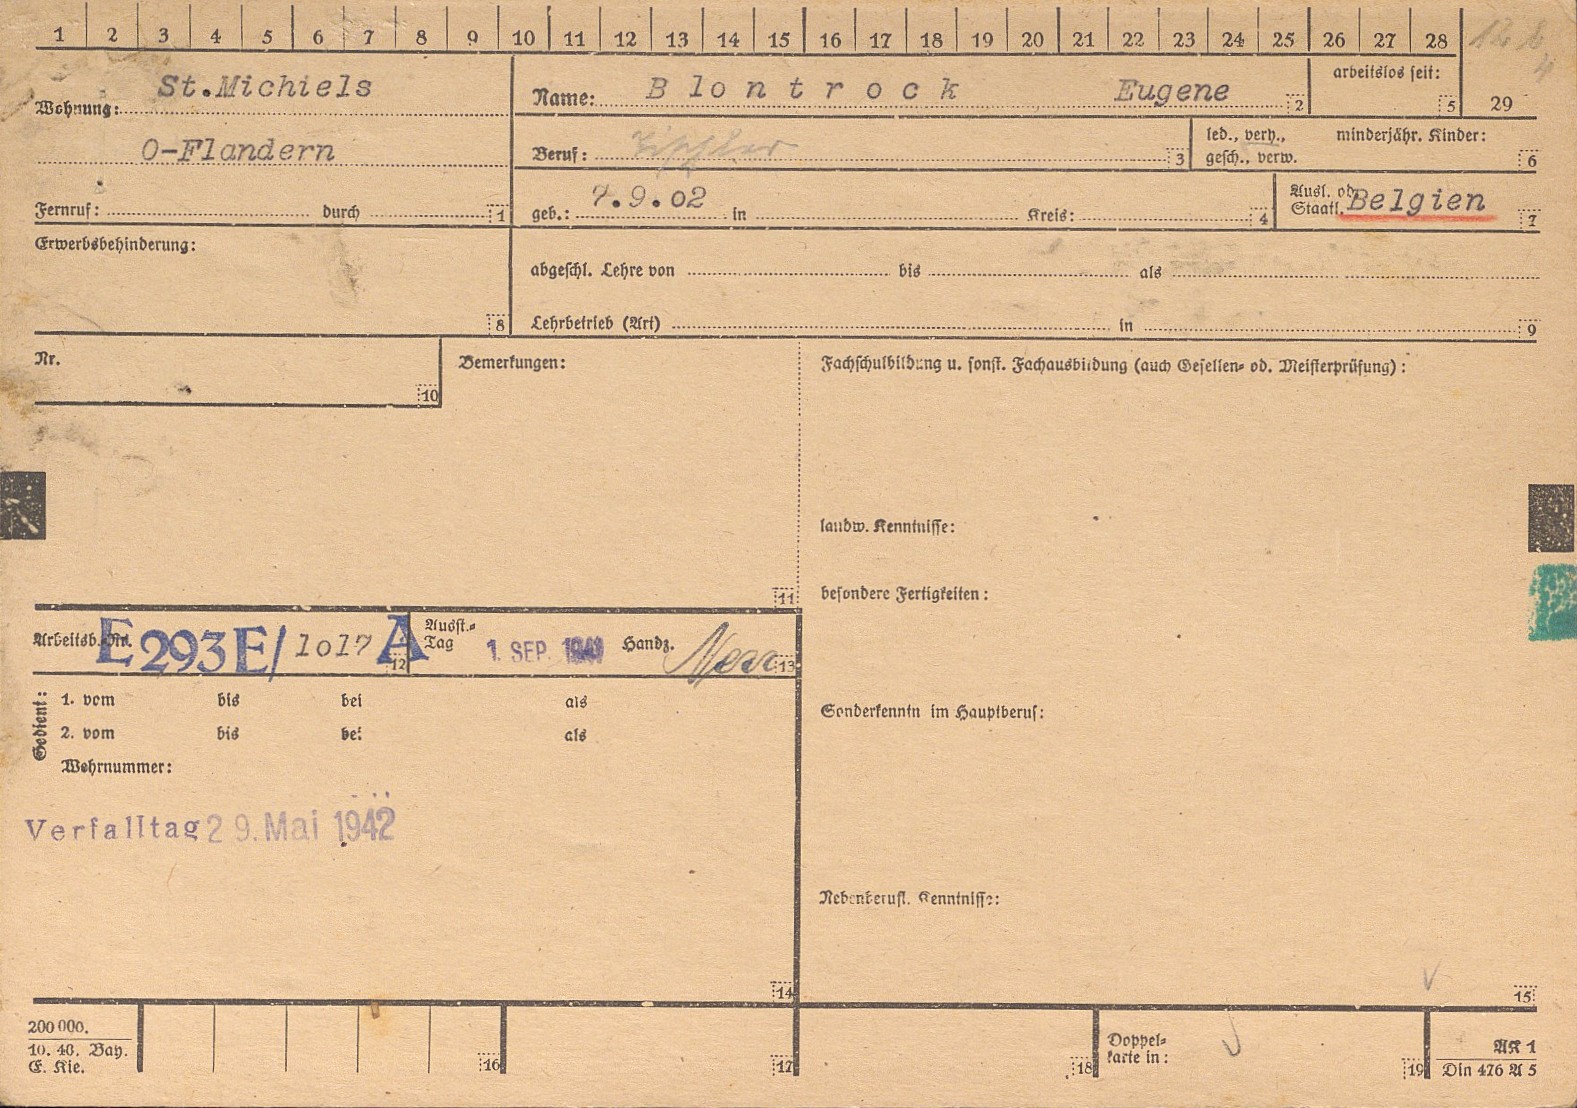 1 2 3 4 5 6 7 8 9 10 11 12 13 14 15 16 17 18 19 20 21 22 23 24 25 26 27 28
Wohnung: St.Michiels
O-Flandern
Fernruf: durch 1
Name: Blontrock Eugene 2
arbeitslos seit: 5
29
Beruf: Tischler 3
led., verh., minderjähr. Kinder:
gesch., verw. 6
geb.: 7.9.02 in Kreis: 4
Ausl. od.
Staatl. Belgien 7
Erwerbsbehinderung:
8
abgeschl. Lehre von bis als
Lehrbetrieb (Art) in 9
Nr.
10
Bemerkungen:
11
Fachschulbildung u. sonst. Fachausbildung (auch Gesellen- od. Meisterprüfung):
landw. Kenntnisse:
besondere Fertigkeiten:
Sonderkenntn im Hauptberuf:
Nebenberufl. Kenntnisse:
15
Arbeitsb.-Nr. E 293 E/ 1017 A 12
Ausst.-
Tag 1. SEP. 1941 Handz. 13
Gedient:
1. vom bis bei als
2. vom bis bei als
Wehrnummer:
Verfalltag 29. Mai 1942
14
200 000.
10. 40. Bay.
E. Kie.
16
17
18
Doppel-
karte in:
19
AK 1
Din 476 A 5